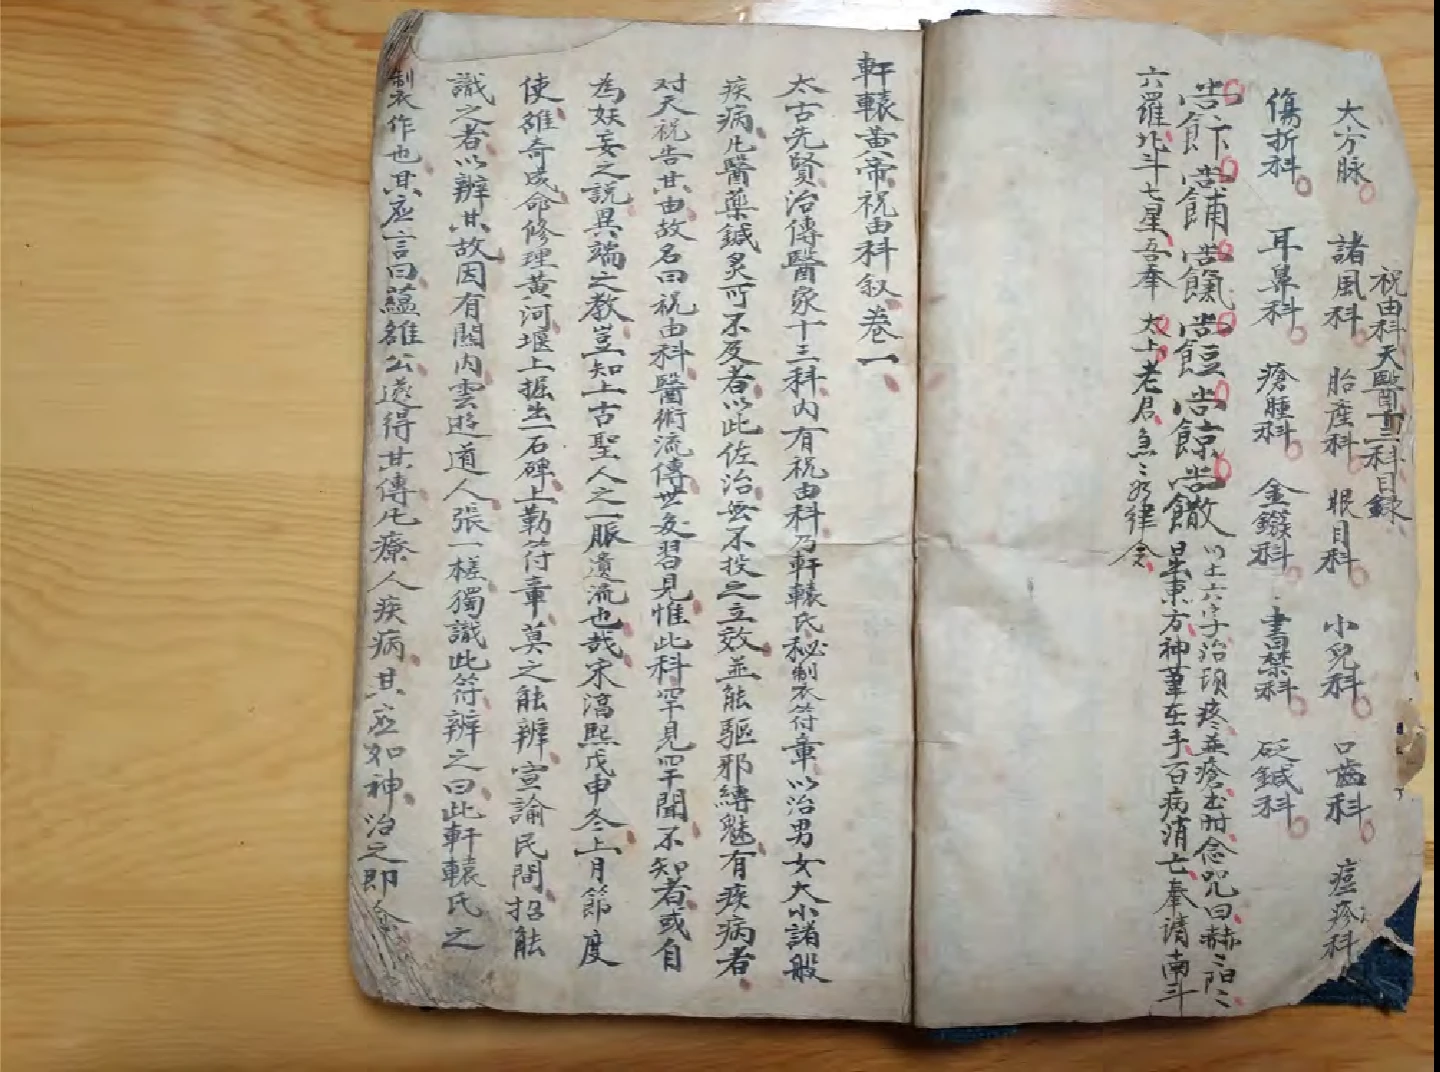 祝由科天醫十三科目錄
大方脉 諸風科 胎產科 眼目科 小兒科 口齒科 痘疹科
傷折科 耳鼻科 瘡腫科 金鏃科 書禁科 砭鍼科
以上六字治項疼並瘡出時念咒曰赫〻陽〻
東方神筆在手百病消亡奉請南斗
六羅北斗七星吾奉太上老君急〻如律令
軒轅黃帝祝由科叙卷一
太古先賢治傳醫家十三科内有祝由科乃軒轅氏秘制衣符章以治男女大小諸般
疾病凡醫藥鍼炙可不及者以此佐治無不投之立效並能驅邪縛魅有疾病者
对天祝告其由故名曰祝由科醫術流傳世家習見惟此科罕見罕聞不知者或自
為妖妄之説異端之教豈知上古聖人之一脈遺流也哉宋淳熙戊申冬上月節度
使雒奇成命修理黃河堰上掘出一石碑上勒符章莫之能辨宣諭民間招能
識之者以辨其故因有関内雲遊道人張一槎獨識此符辨之曰此軒轅氏之
制衣作也其应言曰蘊雒公遂得其傳凡療人疾病其应如神治之即